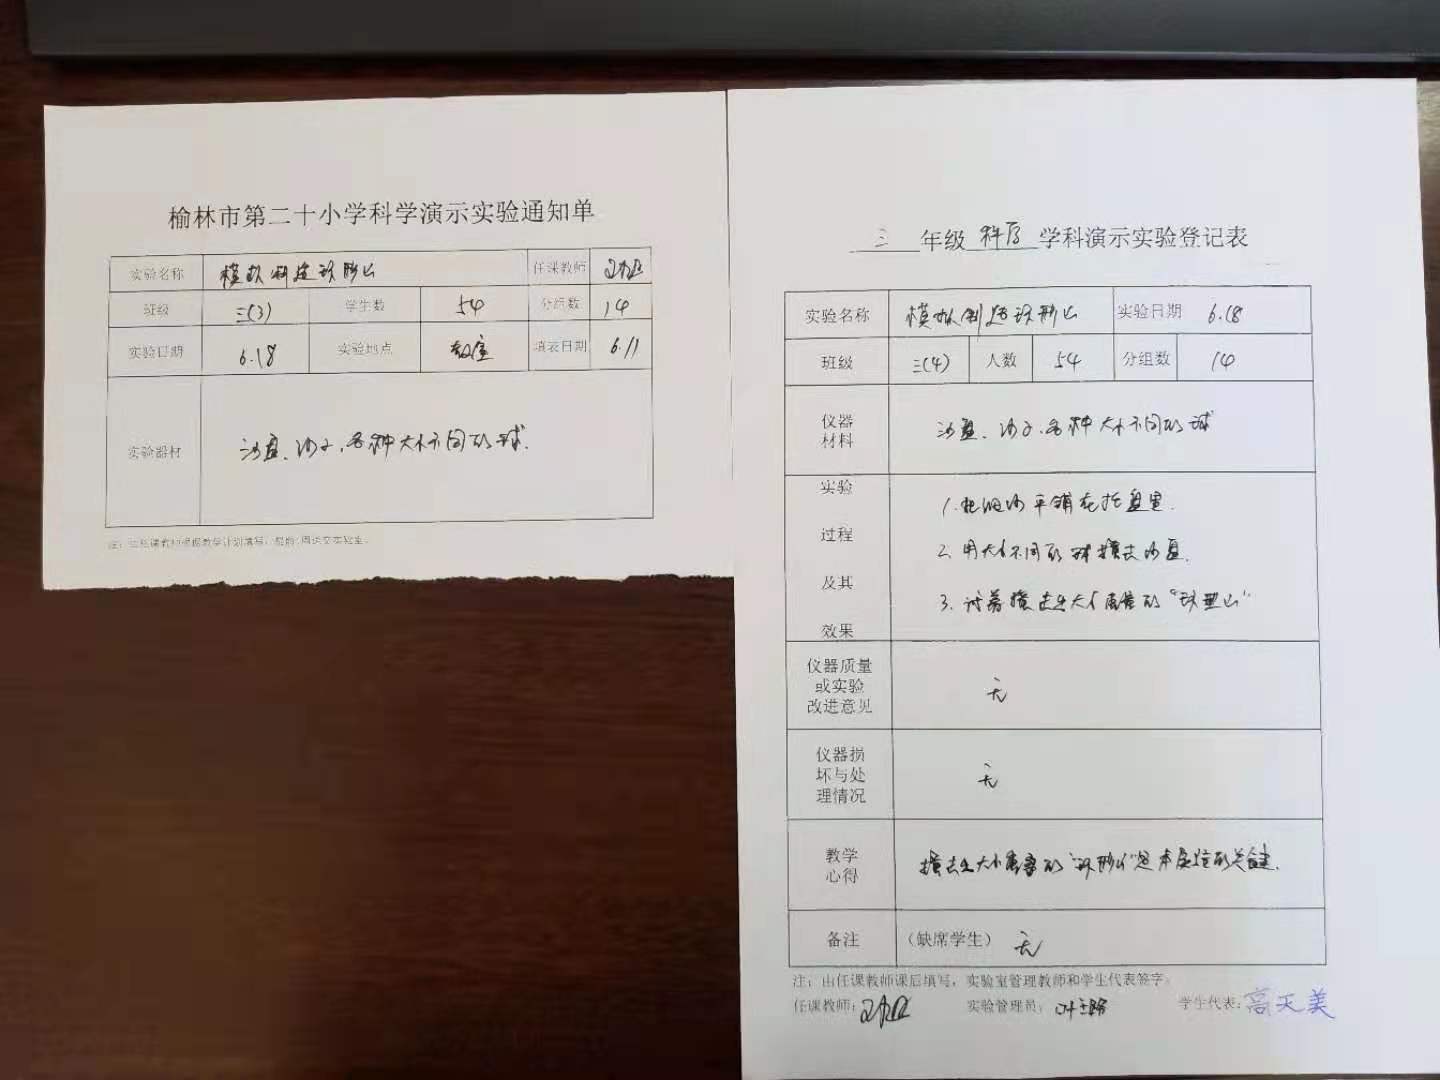 榆林市第二十小学科学演示实验通知单
实验名称 模拟制造环形山 任课教师
班级 三(3) 学生数 54 分组数 14
实验日期 6.18 实验地点 教室 填表日期 6.11
实验器材 沙盘、沙子、各种大小不同的球.
注：由任课教师根据教学计划填写，提前一周送交实验室。
三 年级 科学 学科演示实验登记表
实验名称 模拟制造环形山 实验日期 6.18
班级 三(4) 人数 54 分组数 14
仪器
材料
沙盘、沙子、各种大小不同的球
实验
过程
及其
效果
1.把细沙平铺在托盘里.
2.用大小不同的球撞击沙盘.
3.试着撞击出大小 的“环型山”
仪器质量
或实验
改进意见
无
仪器损
坏与处
理情况
无
教学
心得
撞击出大小 的“环形山”是本实验的关键.
备注 （缺席学生） 无
注：由任课教师课后填写，实验室管理教师和学生代表签字。
任课教师： 实验管理员： 学生代表：高天美